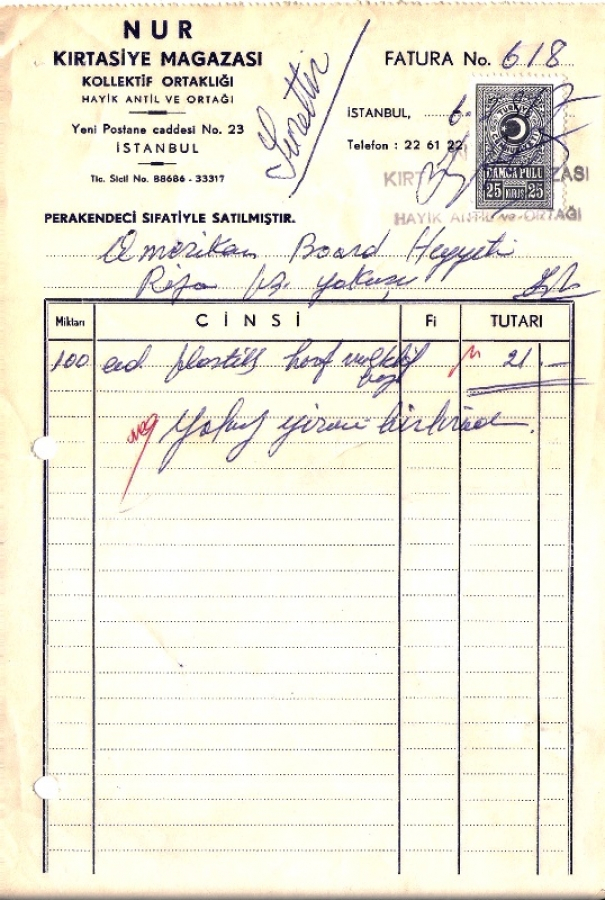 NUR
KIRTASİYE MAGAZASI
KOLLEKTİF ORTAKLIĞI
HAYİK ANTİL VE ORTAĞI
Yeni Postane caddesi No. 23
İSTANBUL
Tic. Sicil No. 88686 - 33317
Surettir
FATURA No. 618
İSTANBUL,
Telefon : 22 61 22
TÜRKİYE
DAMGA PULU
25 KURUŞ 25
HAYİK ANTİL ve ORTAĞI
PERAKENDECİ SIFATİYLE SATILMIŞTIR.
Amerikan Board Heyyeti
Rıza yokuşu
Miktarı CİNSİ Fi TUTARI
100 ad. 21.-
Yalnız yirmi bir liradır.